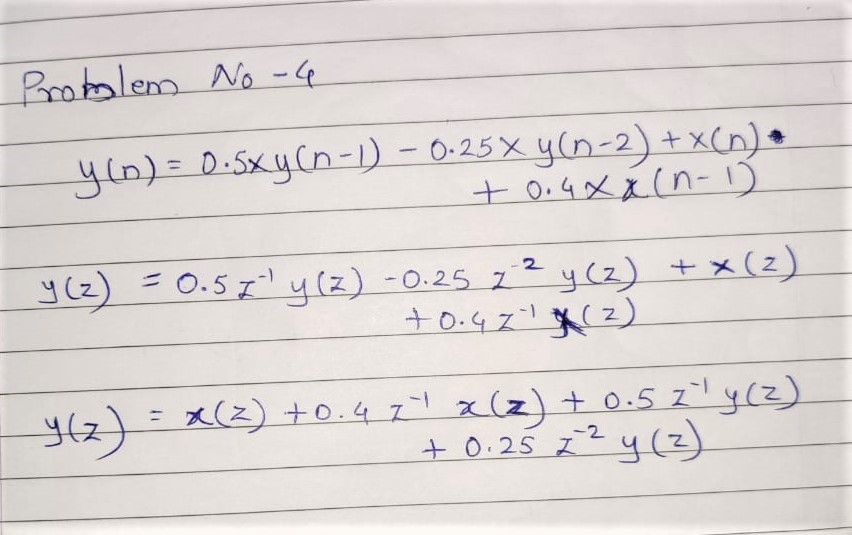 Problem No - 4
y(n) = 0.5xy(n-1) - 0.25x y(n-2) + x(n)
+ 0.4 x x(n-1)
y(z) = 0.5 z⁻¹ y(z) - 0.25 z⁻² y(z) + x(z)
+ 0.4 z⁻¹ x(z)
y(z) = x(z) + 0.4 z⁻¹ x(z) + 0.5 z⁻¹ y(z)
+ 0.25 z⁻² y(z)